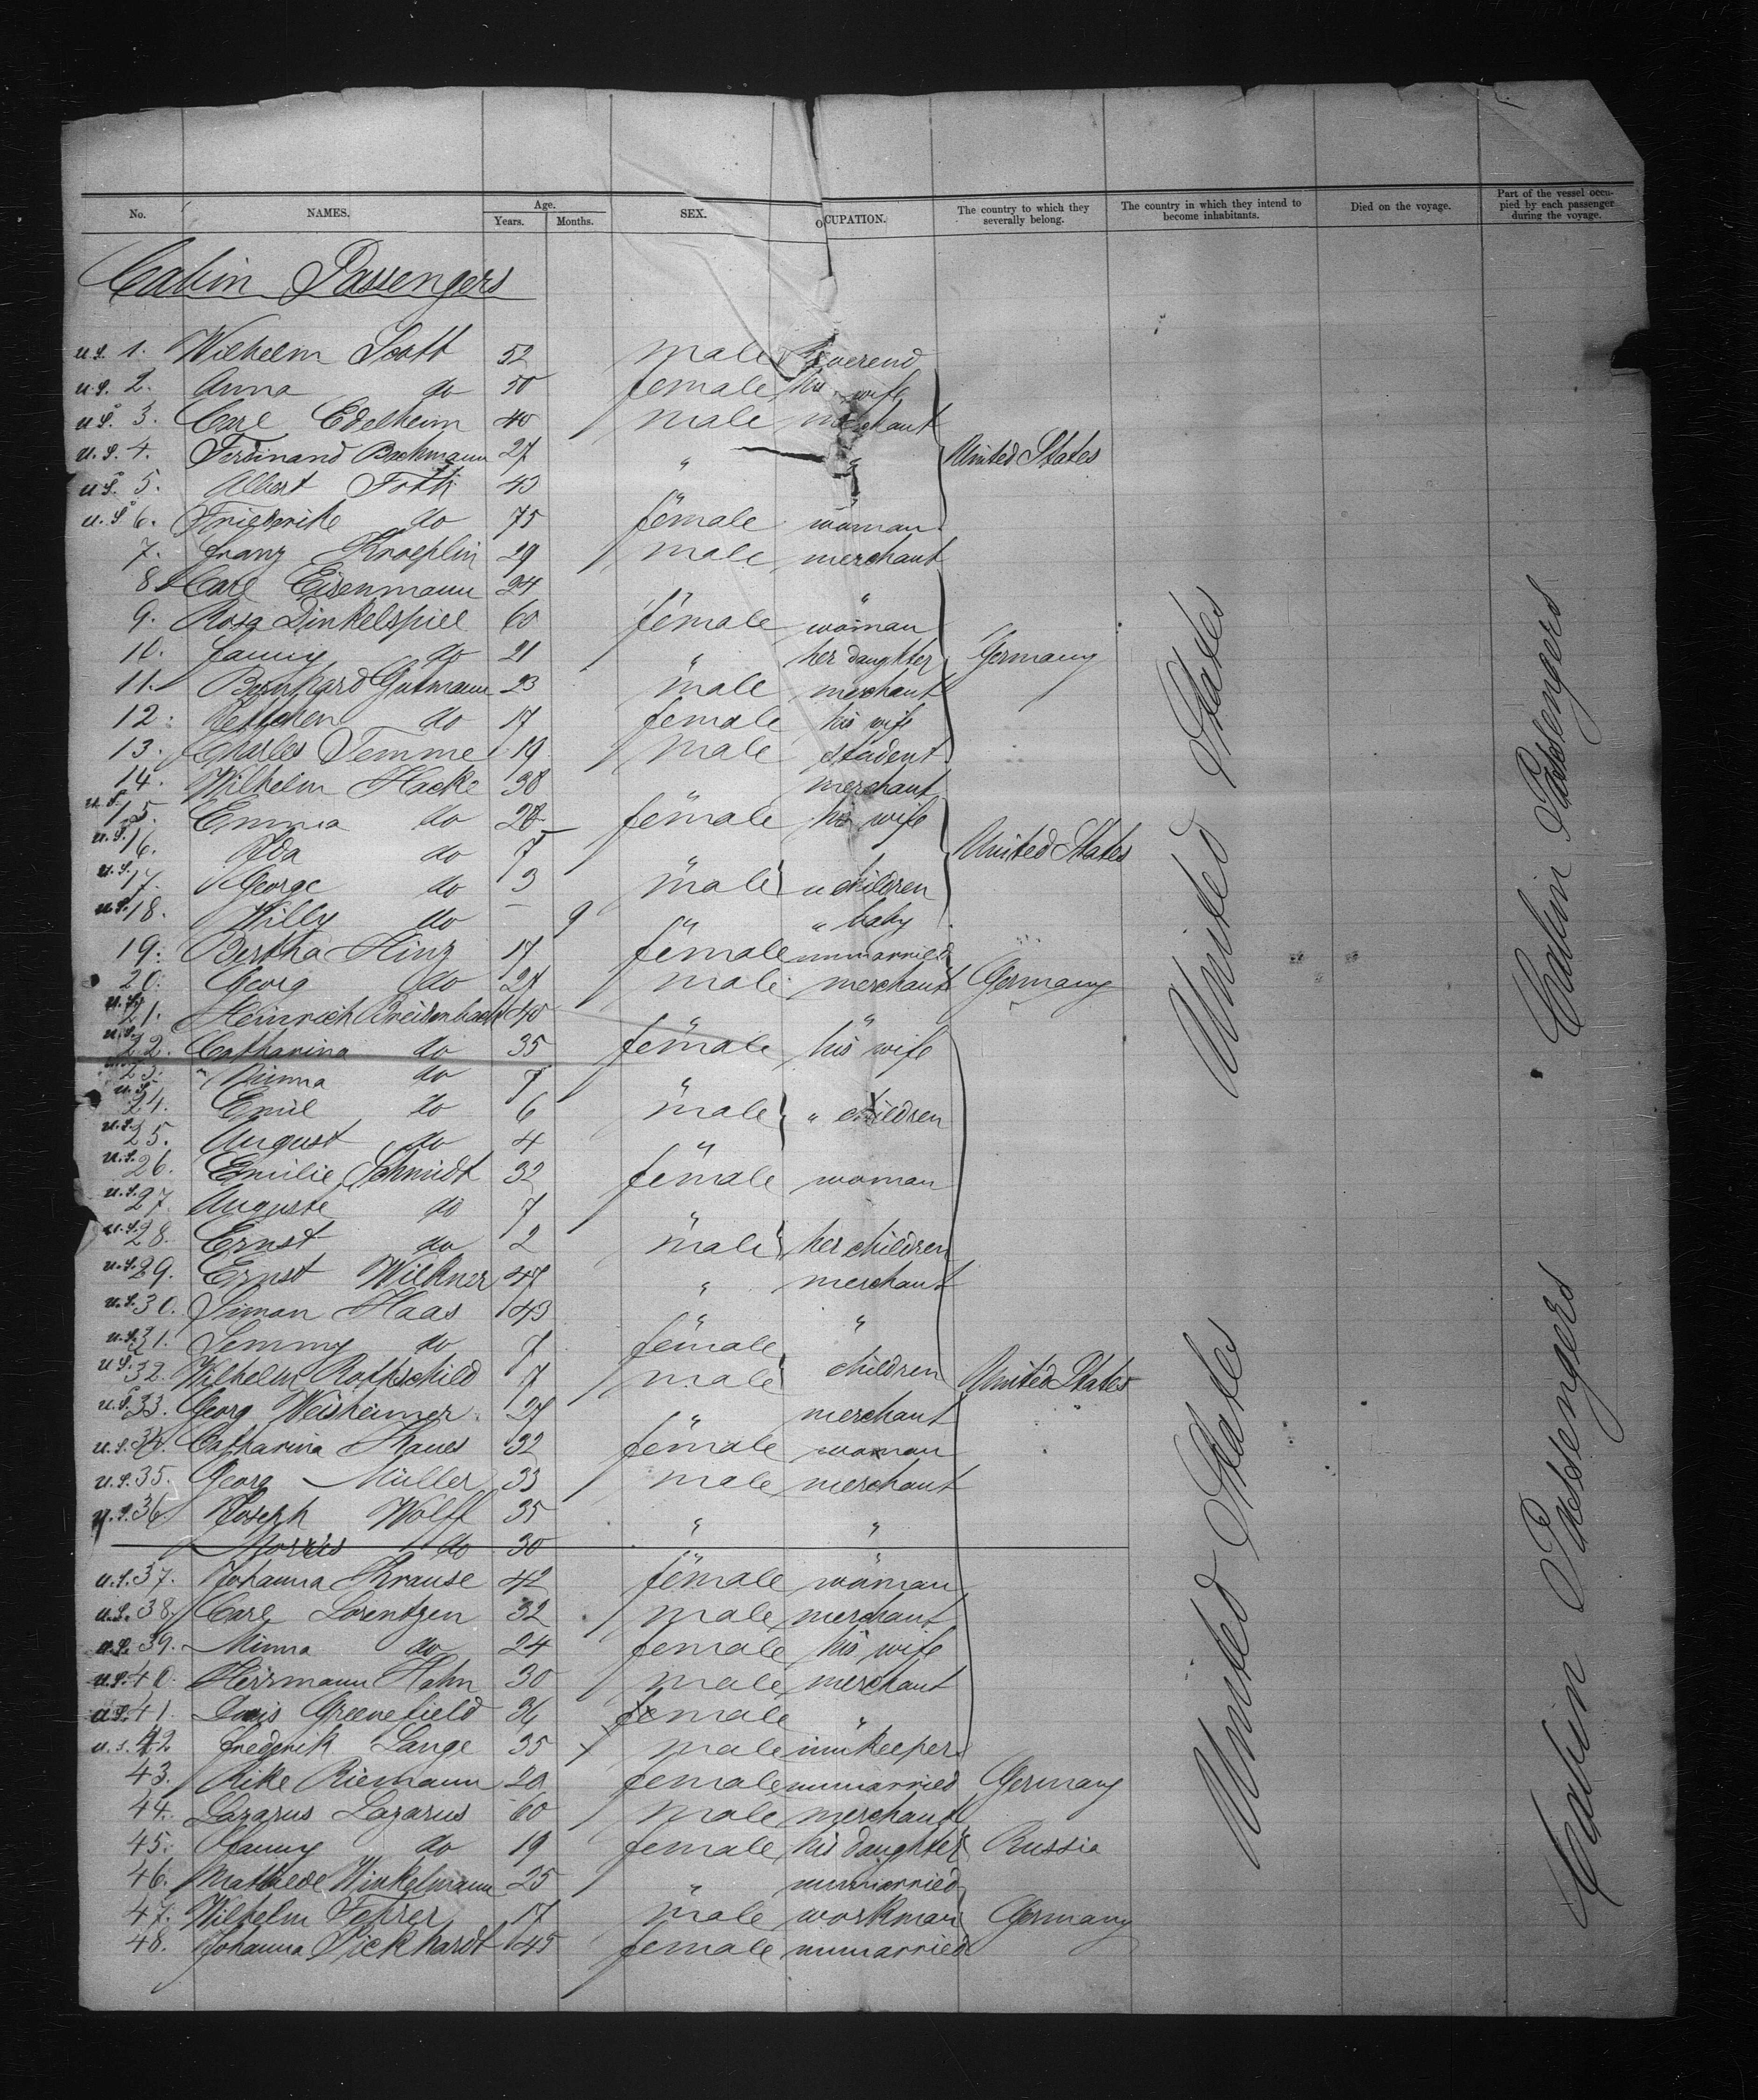 No. NAMES. Age. Years. Months. SEX. OCUPATION. The country to which they severally belong. The country in which they intend to become inhabitants. Died on the voyage. Part of the vessel occupied by each passenger during the voyage.
Cabin Passengers
u.S. 1. Wilhelm 52 male Reverend
u.S. 2. Anna do 50 female his wife
u.S. 3. Carl Edelheim 40 male merchant
u.S. 4. Ferdinand 27 " " United States
u.S. 5. Albert Toth 43
u.S. 6. Friederike do 75 female woman
7. Franz Kroeplin 29 male merchant
8. Carl Eisenmann 24 " "
9. Rosa Dinkelspiel 60 female woman
10. Fanny do 21 " her daughter Germany
11. Bernhard Gutmann 23 male merchant
12. Rettchen do 17 female his wife
13. Charles Temme 19 male student
14. Wilhelm Hacke 38 " merchant
u.S. 15. Emma do 28 female his wife
u.S. 16. Ida do 7 " United States
u.S. 17. George do 3 male " children
u.S. 18. Willy do — 9 " " baby
19. Bertha Hinz 17 female unmarried
20. Georg do 24 male merchant Germany
u.S. 21. Heinrich Breidenbach 40 " "
u.S. 22. Catharina do 35 female his wife
23. Minna do 7 "
u.S. 24. Emil do 6 male " children
u.S. 25. August do 4 "
u.S. 26. Emilie Schmidt 32 female woman
u.S. 27. Auguste do 7 "
u.S. 28. Ernst do 2 male her children
u.S. 29. Ernst Wilkner 47 " merchant
u.S. 30. Simon Haas 43 " "
u.S. 31. Semmy do 7 female
u.S. 32. Wilhelm Rothschild 7 male children United States
u.S. 33. Georg Weisheimer 27 " merchant
u.S. 34. Catharina 32 female woman
u.S. 35. Georg Müller 33 male merchant
u.S. 36 Joseph Wolff 35 " "
Morris do 30
u.S. 37. Johanna Krause 42 female woman
u.S. 38. Carl Lorentzen 32 male merchant
u.S. 39. Minna do 24 female his wife
u.S. 40. Herrmann Hahn 30 male merchant
u.S. 41. Louis Greenefield 36 female "
u.S. 42 Frederik Lange 35 male innkeeper
43. Rike Riemann 20 female unmarried Germany
44. Lazarus Lazarus 60 male merchant
45. Fanny do 19 female his daughter Russia
46. Mathilde Winkelmann 25 " unmarried
47. Wilhelm Fehrer 17 male workman Germany
48. Johanna Pickhardt 45 female unmarried
United States
United States
Cabin Passengers
Cabin Passengers